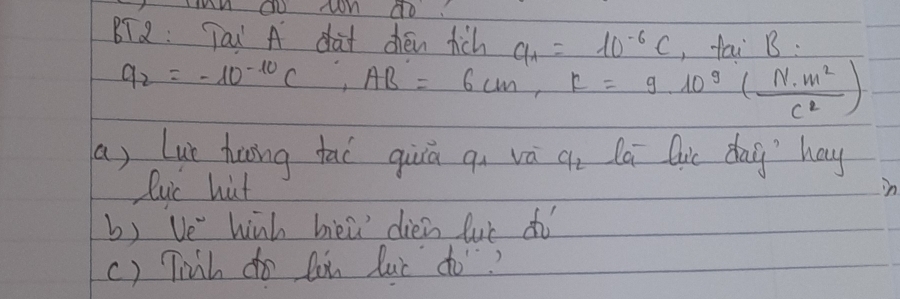 BT2: Tại A đặt điện tích q₁ = 10⁻⁶ C, tại B:
q₂ = -10⁻¹⁰ C, AB = 6 cm, k = 9.10⁹ (N.m²/C²)
a) Lực tương tác giữa q₁ và q₂ là lực đẩy hay
lực hút
b) Vẽ hình biểu diễn lực đó
c) Tính độ lớn lực đó?